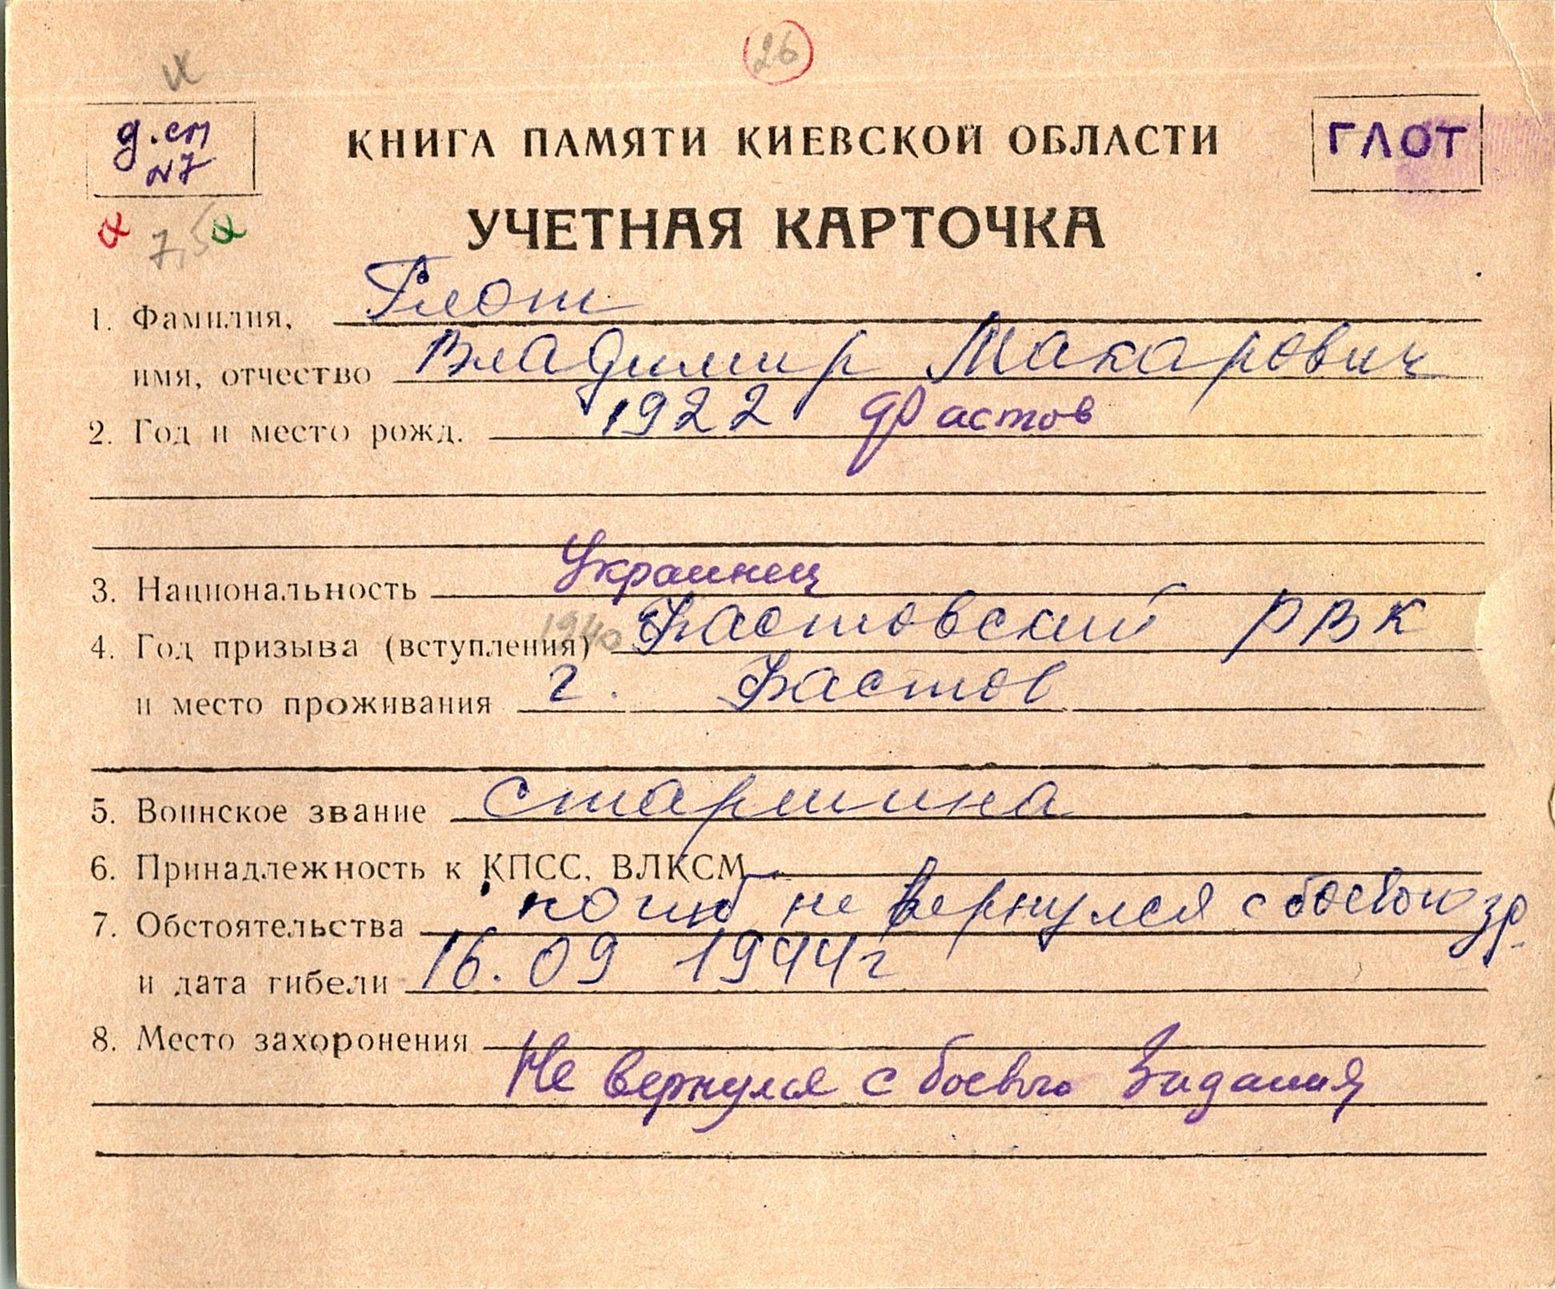 26
д.ст
N7
КНИГА ПАМЯТИ КИЕВСКОЙ ОБЛАСТИ
ГЛОТ
7,5
УЧЕТНАЯ КАРТОЧКА
1. Фамилия, Глот
имя, отчество Владимир Макарович
2. Год и место рожд. 1922 Фастов
3. Национальность Украинец
4. Год призыва (вступления) 1940 Фастовский РВК
и место проживания г. Фастов
5. Воинское звание старшина
6. Принадлежность к КПСС, ВЛКСМ
7. Обстоятельства погиб не вернулся с боевого зд.
и дата гибели 16.09 1944г
8. Место захоронения
Не вернулся с боевого задания